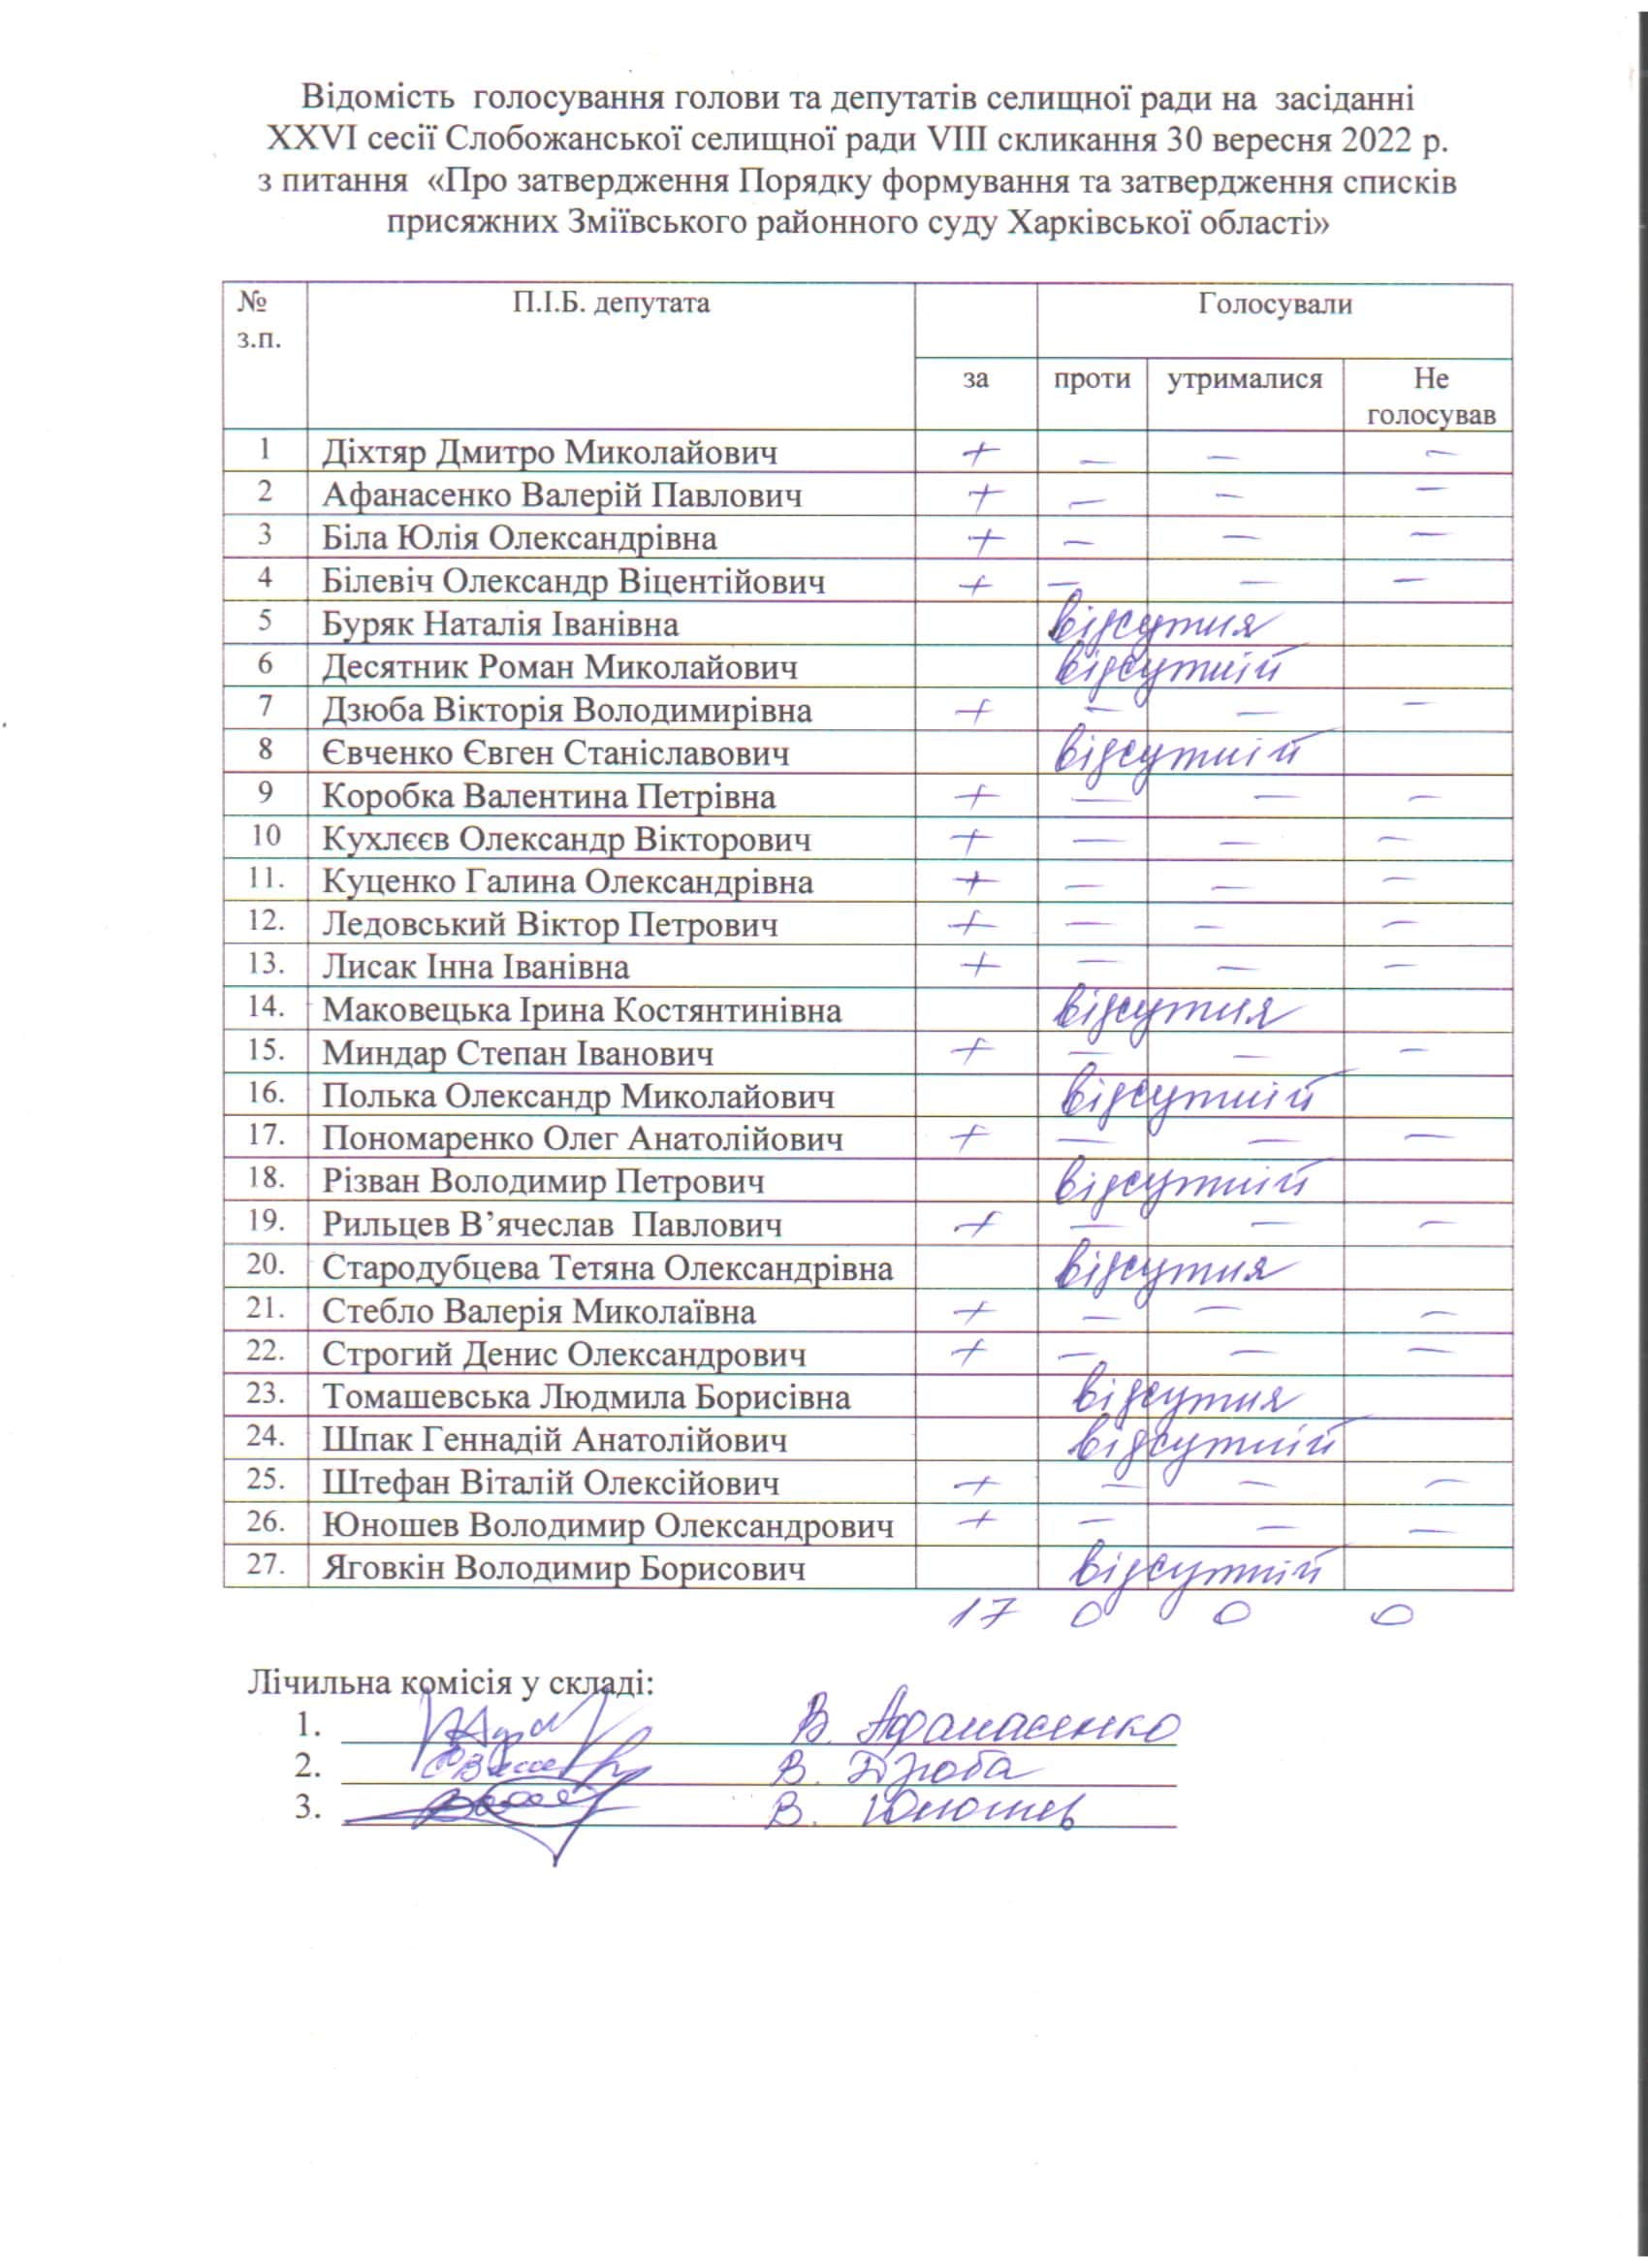 Відомість голосування голови та депутатів селищної ради на засіданні
XXVI сесії Слобожанської селищної ради VIII скликання 30 вересня 2022 р.
з питання «Про затвердження Порядку формування та затвердження списків
присяжних Зміївського районного суду Харківської області»
№ з.п. П.І.Б. депутата Голосували
за проти утрималися Не голосував
1 Діхтяр Дмитро Миколайович + — — —
2 Афанасенко Валерій Павлович + — — —
3 Біла Юлія Олександрівна + — — —
4 Білевіч Олександр Віцентійович + — — —
5 Буряк Наталія Іванівна відсутня
6 Десятник Роман Миколайович відсутній
7 Дзюба Вікторія Володимирівна + — — —
8 Євченко Євген Станіславович відсутній
9 Коробка Валентина Петрівна + — — —
10 Кухлєєв Олександр Вікторович + — — —
11. Куценко Галина Олександрівна + — — —
12. Ледовський Віктор Петрович + — — —
13. Лисак Інна Іванівна + — — —
14. Маковецька Ірина Костянтинівна відсутня
15. Миндар Степан Іванович + — — —
16. Полька Олександр Миколайович відсутній
17. Пономаренко Олег Анатолійович + — — —
18. Різван Володимир Петрович відсутній
19. Рильцев В’ячеслав Павлович + — — —
20. Стародубцева Тетяна Олександрівна відсутня
21. Стебло Валерія Миколаївна + — — —
22. Строгий Денис Олександрович + — — —
23. Томашевська Людмила Борисівна відсутня
24. Шпак Геннадій Анатолійович відсутній
25. Штефан Віталій Олексійович + — — —
26. Юношев Володимир Олександрович + — — —
27. Яговкін Володимир Борисович відсутній
17 0 0 0
Лічильна комісія у складі:
1. В. Афанасенко
2. В. Дзюба
3. В. Юношев